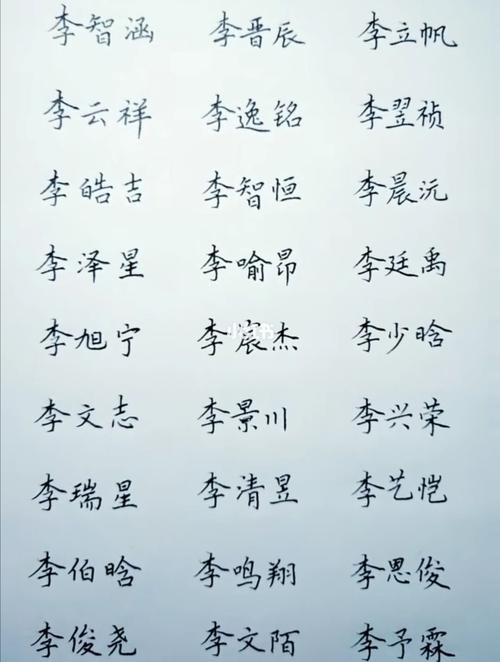 李智涵 李晋辰 李立帆
李云祥 李逸铭 李翌祯
李皓吉 李智恒 李晨沅
李泽星 李喻昂 李廷禹
李旭宁 李宸杰 李少晗
李文志 李景川 李兴荣
李瑞星 李清昱 李艺恺
李伯晗 李鸣翔 李恩俊
李俊尧 李文陌 李予霖